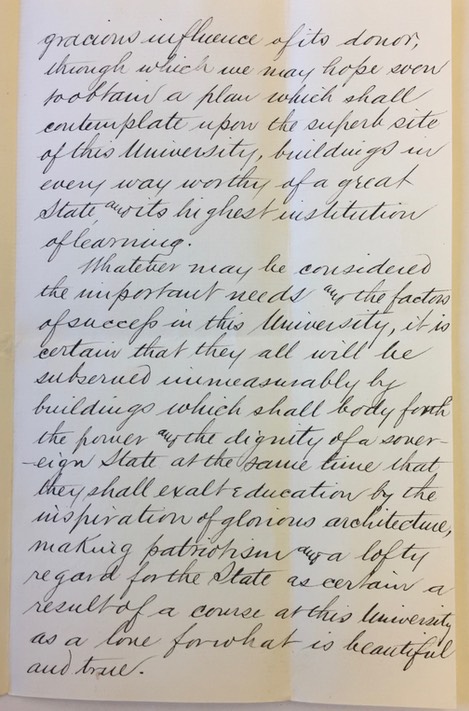 gracious influence of its donor,
through which we may hope soon
to obtain a plan which shall
contemplate upon the superb site
of this University, buildings in
every way worthy of a great
State, and its highest institution
of learning.
Whatever may be considered
the important needs and the factors
of success in this University, it is
certain that they all will be
subserved immeasurably by
buildings which shall body forth
the power and the dignity of a sover-
-eign State at the same time that
they shall exalt Education by the
inspiration of glorious architecture,
making patriotism and a lofty
regard for the State as certain a
result of a course at this University
as a love for what is beautiful
and true.